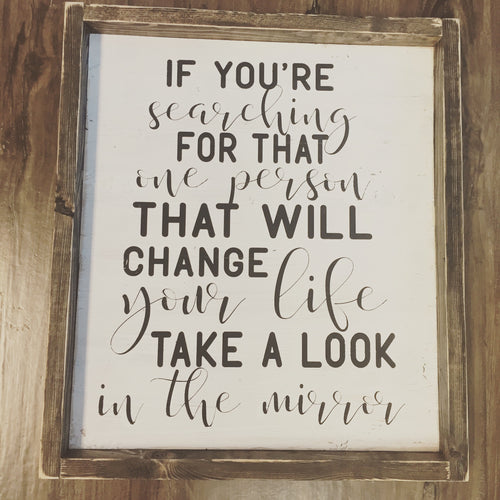 IF YOU'RE
searching
FOR THAT
one person
THAT WILL
CHANGE
your life
TAKE A LOOK
in the mirror